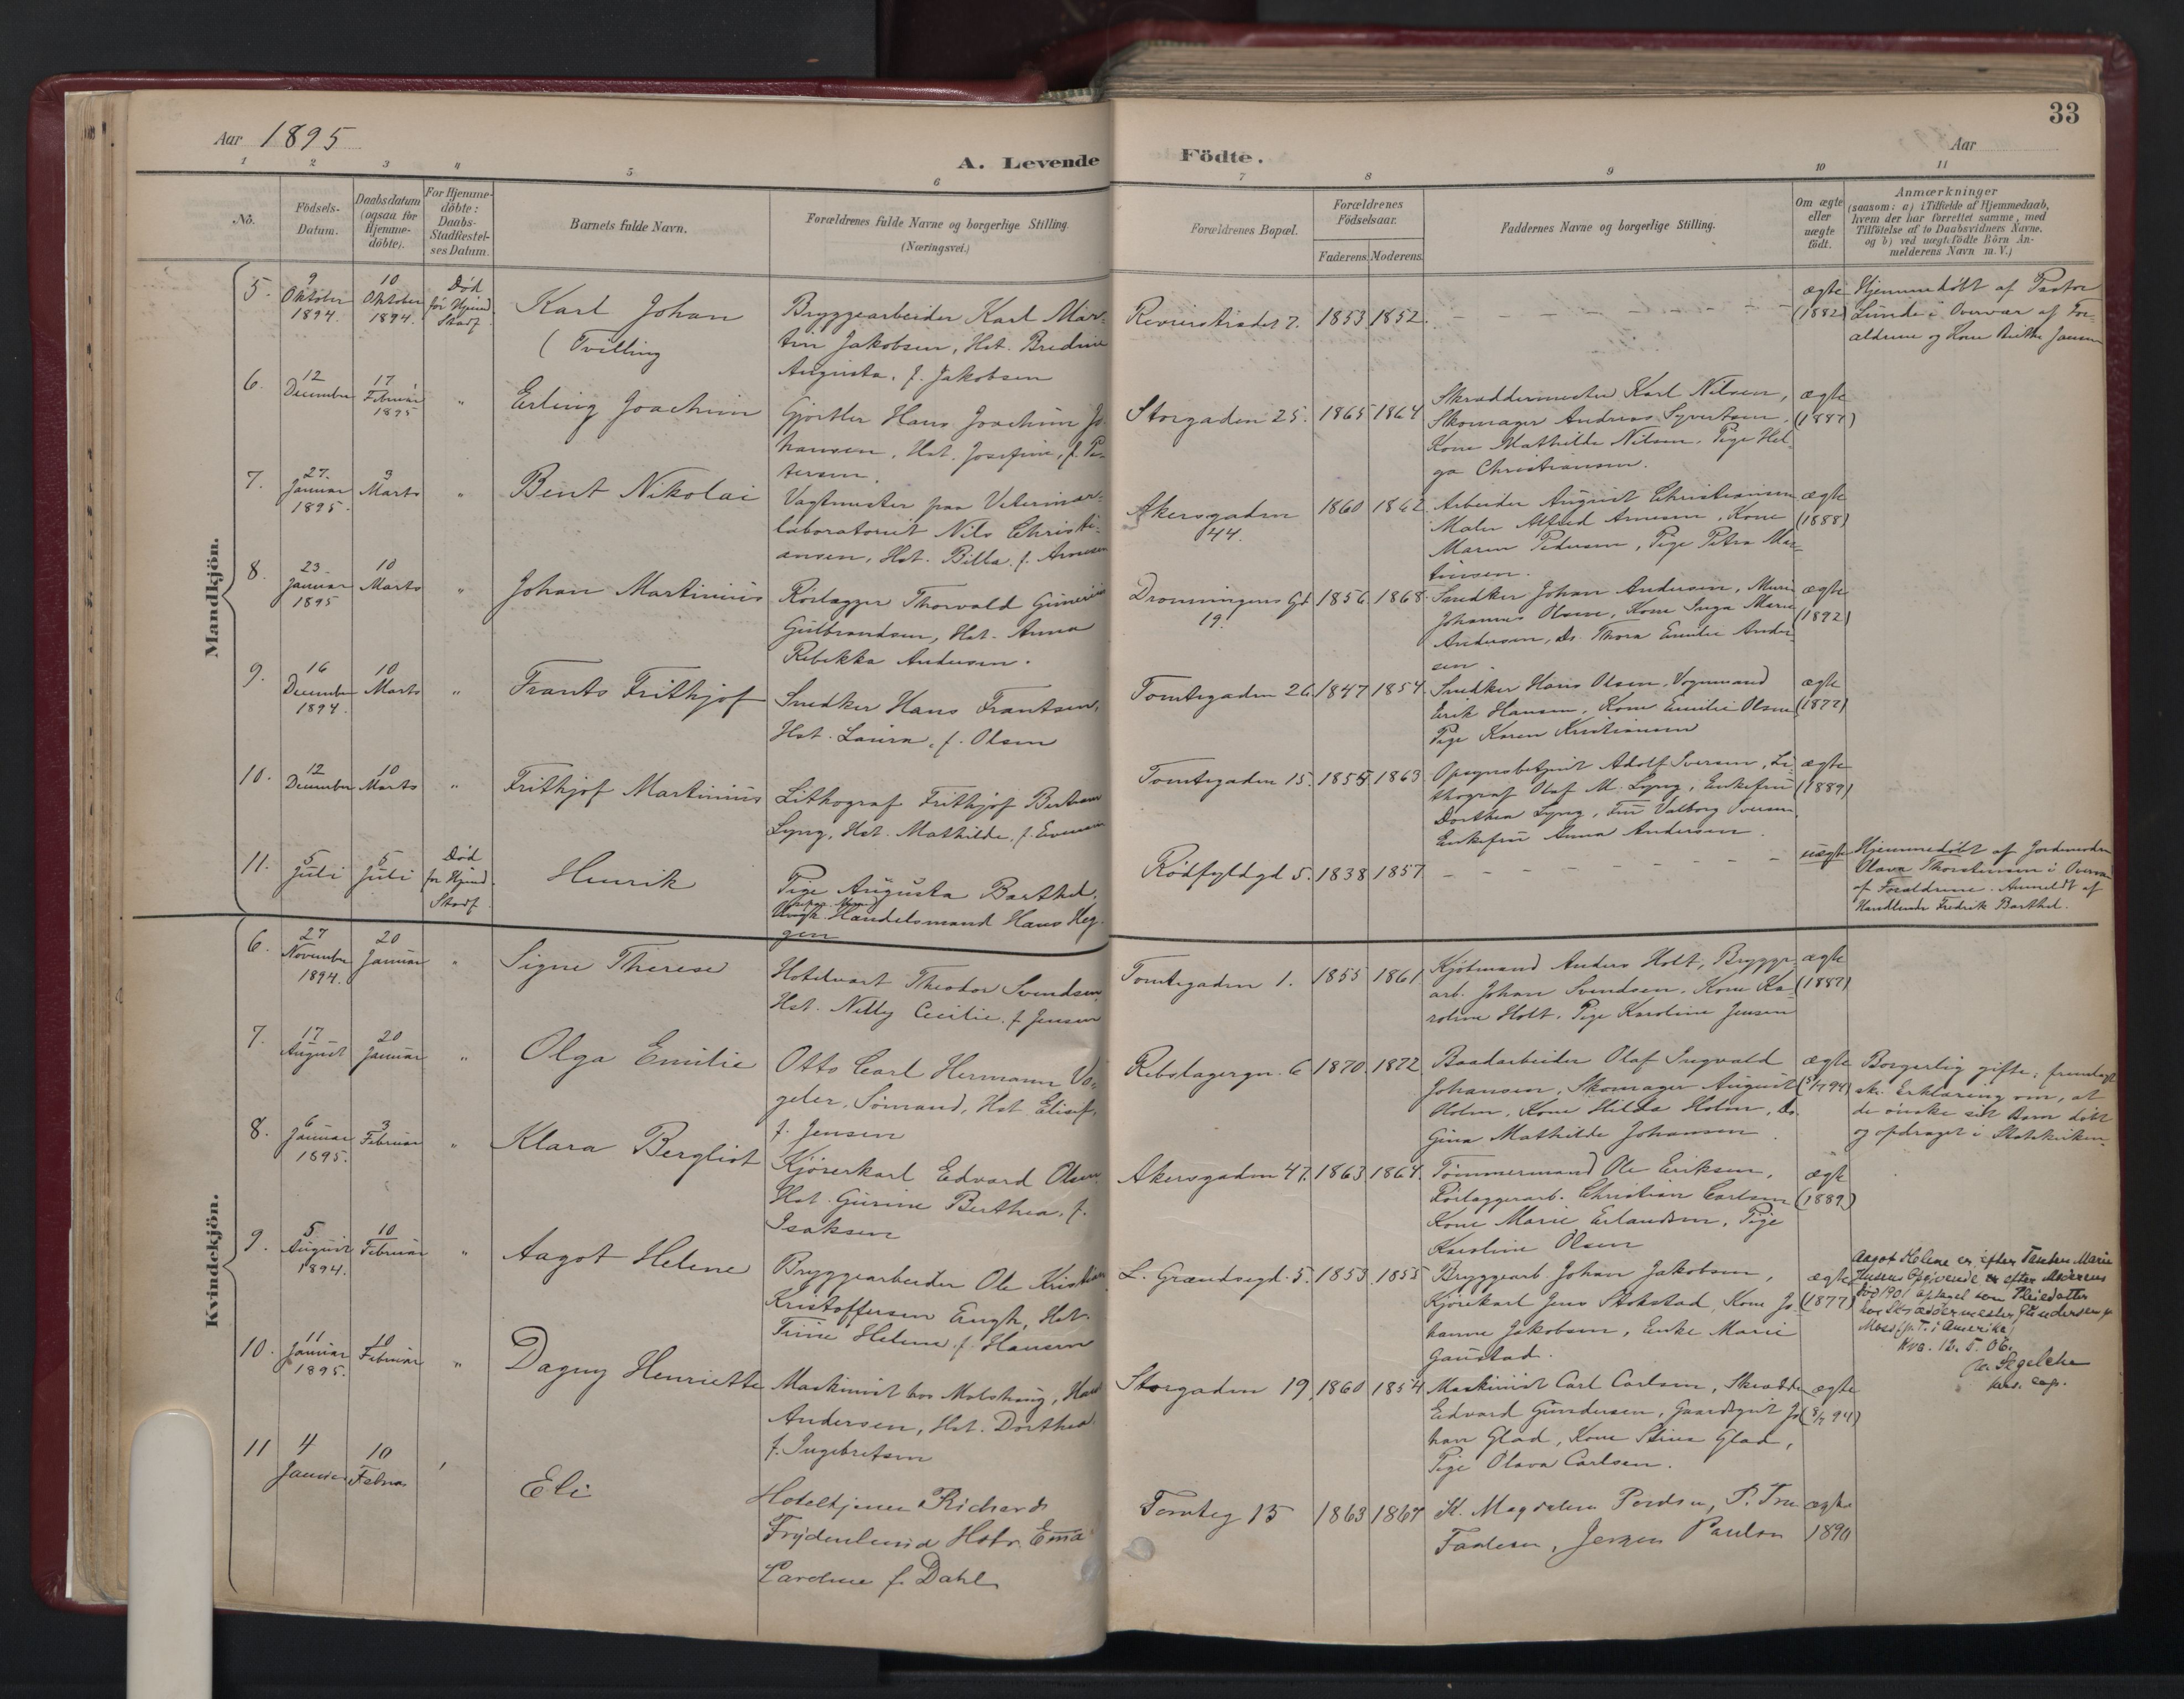 Aar 1895
A. Levende Födte.
Aar
33
1 2 3 4 5 6 7 8 9 10 11
No.
Födsels-
Datum.
Daabsdatum
(ogsaa for
Hjemme-
döbte).
For Hjemme-
döbte:
Daabs-
Stadfæstel-
ses Datum.
Barnets fulde Navn.
Forældrenes fulde Navne og borgerlige Stilling.
(Næringsvei.)
Forældrenes Bopæl.
Forældrenes
Födselsaar.
Faderens. Moderens.
Faddernes Navne og borgerlige Stilling.
Om ægte
eller
uægte
födt.
Anmærkninger
(saasom: a) i Tilfælde af Hjemmedaab,
hvem der har forrettet samme, med
Tilföielse af to Daabsvidners Navne.
og b) ved uægte födte Börn An-
melderens Navn m. V.)
Mandkjön.
5.
9
Oktober
1894.
10
Oktober
1894.
Død
før Hjemd.
Stadf.
Karl Johan
(Tvilling
Bryggearbeider Karl Mar-
tin Jakobsen, Hst. Bredine
Augusta, f. Jakobsen
Revierstrædet 7.
1853 1852.
ægte
(1882)
Hjemmedøbt af Pastor
Lunde i Overvær af For-
ældrene og Kone Birthe Jansen
6.
12
December
17
Februar
1895
"
Erling Joachim
Gjørtler Hans Joachim Jo-
hansen, Hst. Josefine, f. Pe-
tersen.
Storgaden 25.
1865 1864
Skræddermester Karl Nilsen,
Skomager Andreas Syvertsen,
Kone Mathilde Nilsen, Pige Hel-
ga Christiansen.
ægte
(1887)
7.
27.
Januar
1895.
3
Marts
"
Bent Nikolai
Vagtmester paa Veterinær-
laboratoriet Nils Christi-
ansen, Hst. Billa, f. Arnesen
Akersgaden
44.
1860 1862
Arbeider August Christiansen
Maler Alfred Arnesen, Kone
Maren Pedersen, Pige Petra Mar-
tinsen.
ægte
(1888)
8.
23.
Januar
1895
10
Marts
"
Johan Martinius
Rørlægger Thorvald Gunerius
Gulbrandsen, Hst. Anna
Rebekka Andersen.
Dronningens Gd.
19.
1856 1868
Snedker Johan Andersen, Murer
Johannes Olsen, Kone Inga Marie
Andersen, Do. Thora Emilie Ander-
sen.
ægte
(1892)
9.
16
December
1894.
10
Marts
"
Frants Frithjof
Snedker Hans Frantsen,
Hst. Laura, f. Olsen
Tomtegaden 26.
1847 1854
Snedker Hans Olsen, Vognmand
Erik Hansen, Kone Emilie Olsen
Pige Karen Kristiansen
ægte
(1872)
10.
12
December
10
Marts
"
Frithjof Martinius
Lithograf Frithjof Bertram
Lyng, Hst. Mathilde, f. Evensen
Tomtegaden 15.
1855 1863
Opsynsbetjent Adolf Iversen, Li-
thograf Olaf M. Lyng, Enkefru
Dorthea Lyng, Fru Valborg Iversen
Enkefru Anna Andersen.
ægte
(1889)
11.
5
Juli
5
Juli
Død
før Hjemd.
Stadf.
Henrik
Pige Augusta Barthel,
Handelsmand Hans Heg-
gen
Rødfyldgd 5.
1838 1857
uægte
Hjemmedøbt af Jordmoder
Olava Thorstensen i Overvær
af Forældrene. Anmeldt af
Handlende Fredrik Barthel.
Kvindekjön.
6.
27
November
1894.
20
Januar
"
Signe Therese
Hotelvært Theodor Svendsen,
Hst. Nelly Cecilie, f. Jensen
Tomtegaden 1.
1855 1861
Kjøbmand Anders Holt, Brygge-
arb. Johan Svendsen, Kone Ka-
roline Holt, Pige Karoline Jensen
ægte
(1887)
7.
17
August
20
Januar
"
Olga Emilie
Otto Carl Hermann Vo-
geler, Sømand, Hst. Elisif,
f. Jensen
Rebslagergn. 6
1870 1872
Baadarbeider Olaf Ingvald
Johansen, Skomager August
Holm, Kone Hilda Holm, Do.
Gina Mathilde Johansen.
ægte
Borgerlig gifte, fremlagt
skr. Erklæring om, at
de ønske sit Barn døbt
og opdraget i Statskirken.
8.
6
Januar
1895.
3
Februar
"
Klara Bergliot
Kjørerkarl Edvard Olsen
Hst. Gurine Berthea, f.
Isaksen
Akersgaden 47.
1863 1864.
Tømmermand Ole Eriksen,
Rørlæggerarb. Christian Carlsen
Kone Marie Erlandsen, Pige
Karoline Olsen
ægte
(1889)
9.
5
August
1894.
10
Februar
"
Aagot Helene
Bryggearbeider Ole Kristian
Kristoffersen Engh, Hst.
Trine Helene, f. Hansen
L. Grændsegd. 5.
1853 1855
Bryggearb. Johan Jakobsen,
Kjørekarl Jens Stokstad, Kone Jo-
hanne Jakobsen, Enke Marie
Gaustad.
ægte
(1877)
Aagot Helene er, efter Tanten Marie
Opgivende efter Moderens
Død 1901 optaget som Pleiedatter
hos Skræddermester Gundersen
Moss (p. T. i Amerika)
Kra. 12. 5. 06.
10.
11
Januar
1895.
10
Februar
"
Dagny Henriette
Maskinist hos Malstrøng, Hans
Andersen, Hst. Dorthea
f. Ingebretsen
Storgaden 19,
1860 1854
Maskinist Carl Carlsen, Skrædder
Edvard Gundersen, Gaardsgut Jo-
han Glad, Kone Stina Glad,
Pige Olava Carlsen.
ægte
11
4
Januar
10
Februar
Eli
Hoteltjener Richard
Frydenlund Hstr. Ema
Caroline f. Dahl
Tomteg 15
1863 1867
ægte
1890